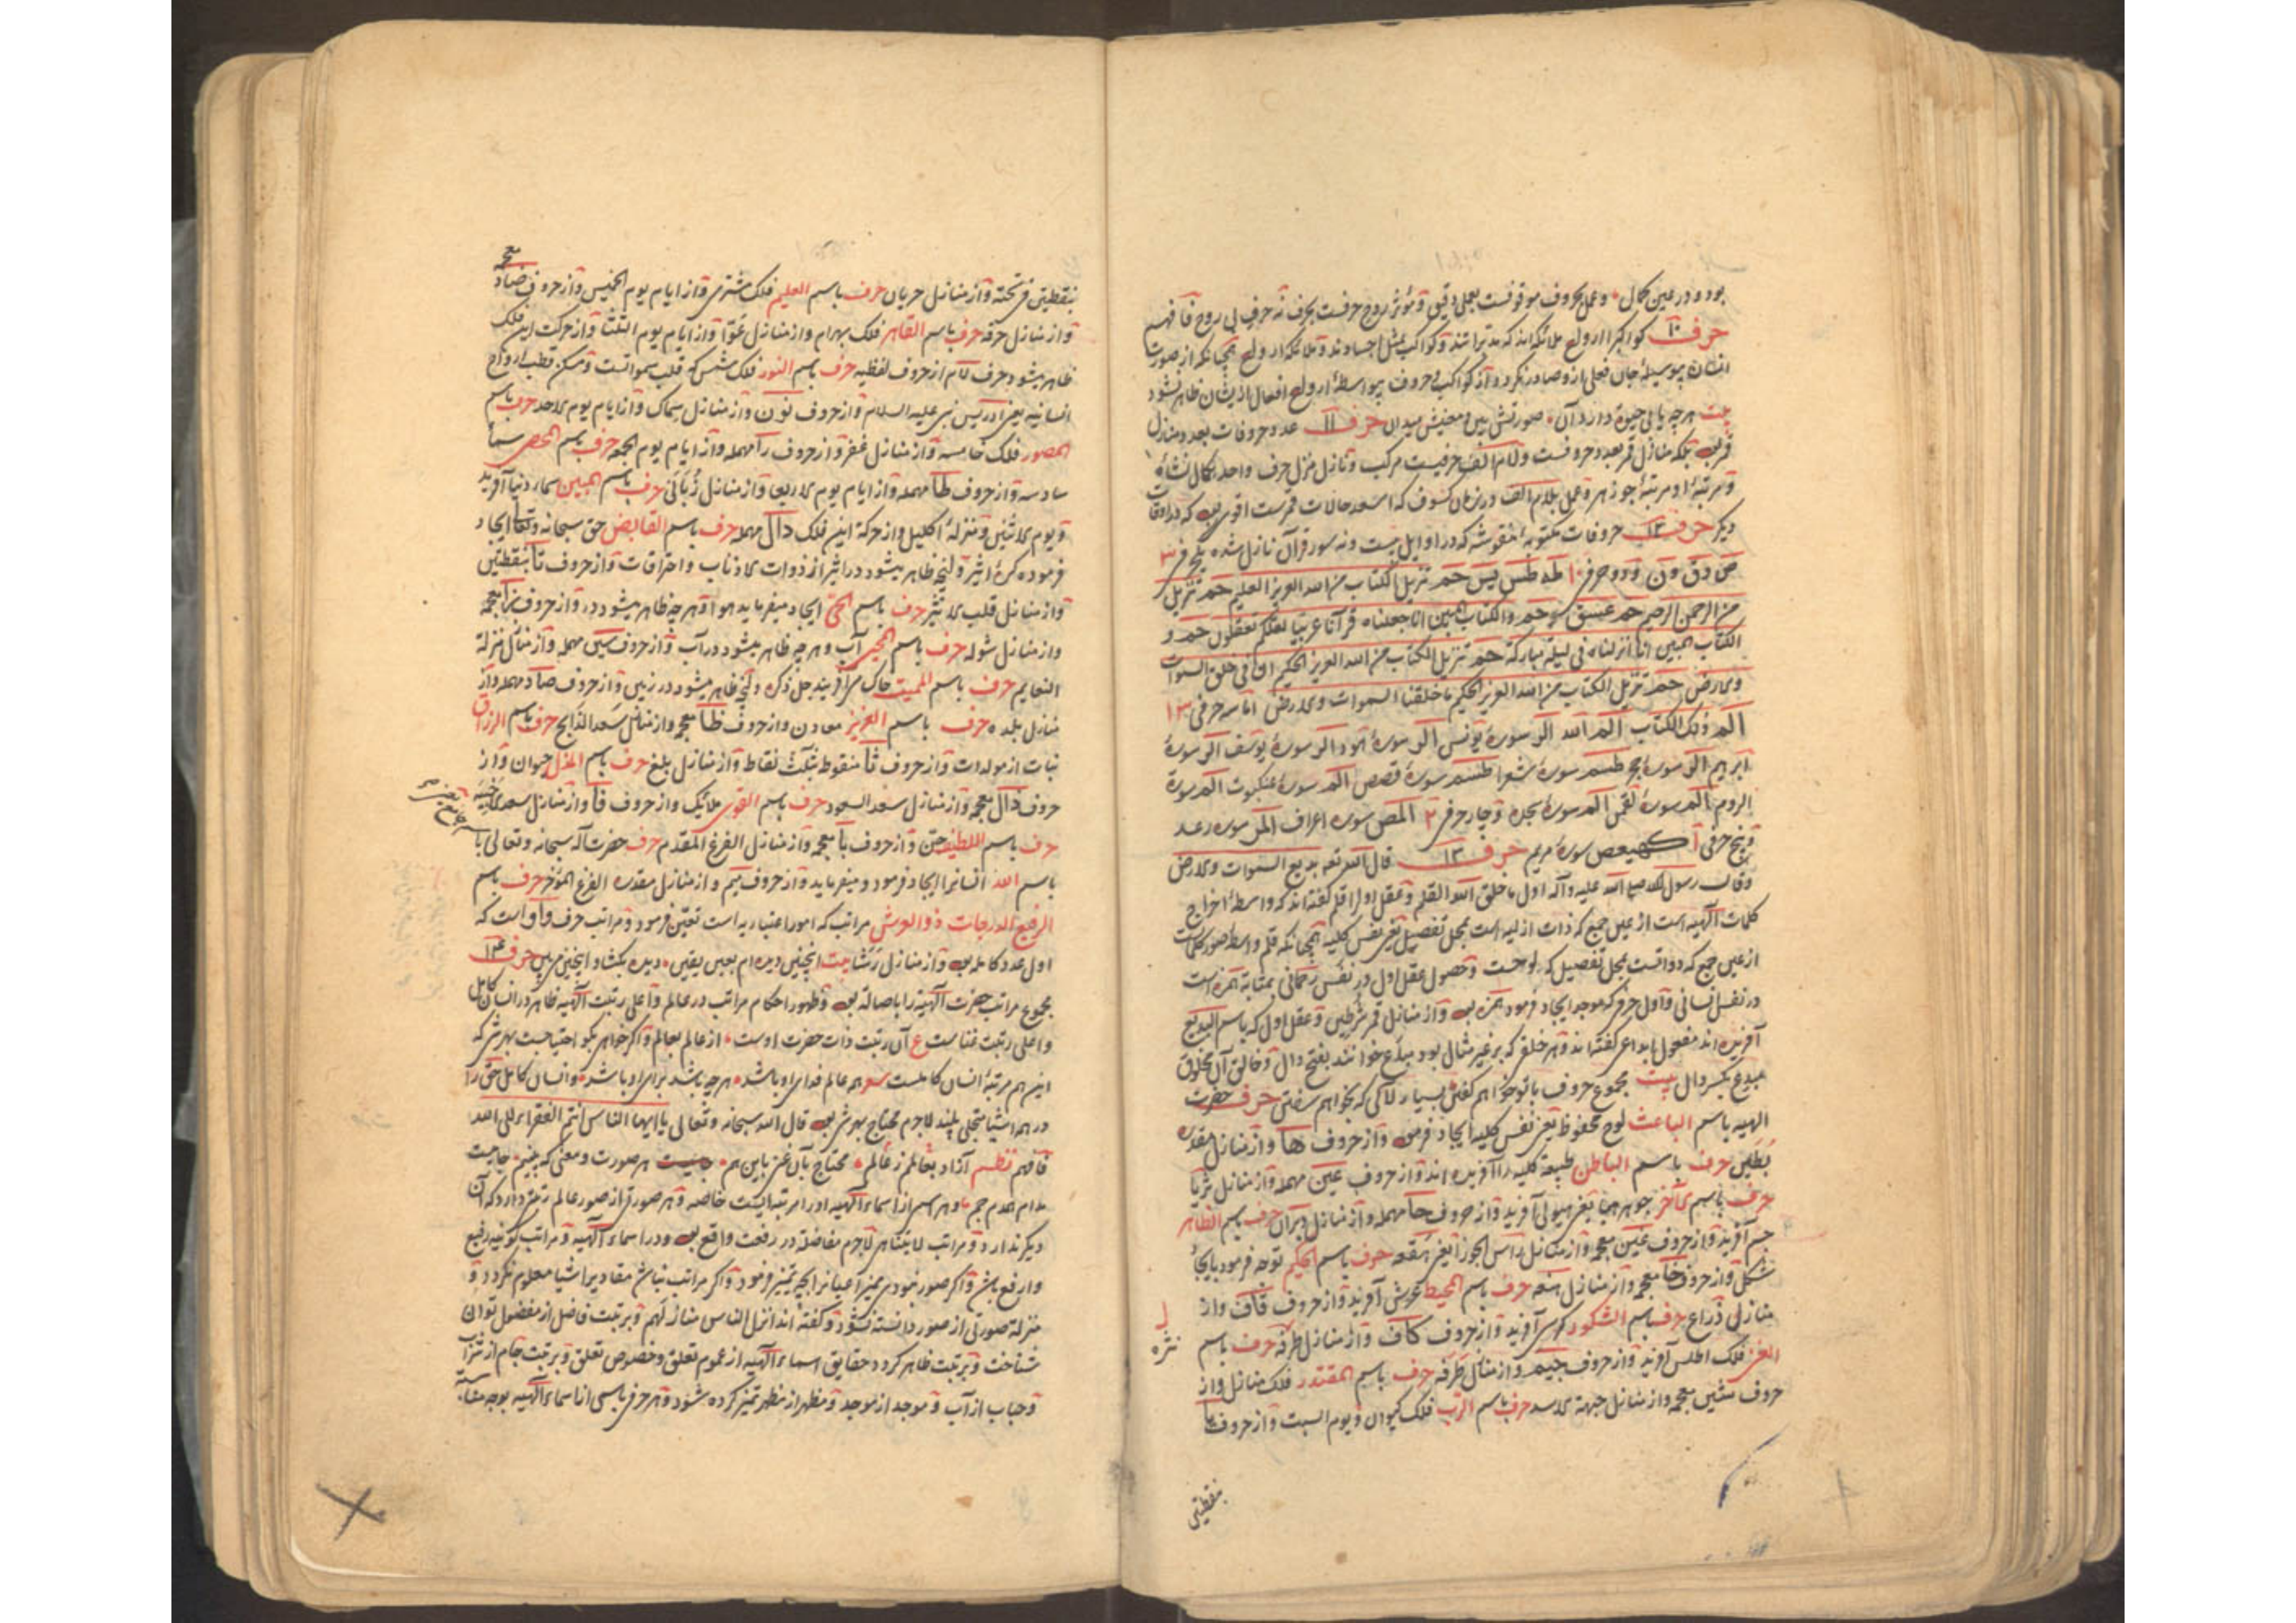 بود و در عین کمال و عمل بحروف موقوفست بعملی دقیق و مؤثر روح حرفست بحرف نه حرف بی روح فافهم
حرف ۱۰ کواکب را ارواح ملائکه اند که مدبر اشند و کواکب بمثل اجسادند و ملائکه ارواح همچنانکه از صورت
انسان بی وسیلهٔ جان فعلی ازو صادر نگردد و از کواکب و حروف بی واسطهٔ ارواح افعال ازیشان ظاهر نشود
بیت هرچه یابی حیوة دارد آن صورتش بین و معنیش میدان حرف ۱۱ عدد حروفات بعدد منازل
قمر بلکه منازل قمر بعدد حروفست و لام الف حرفیست مرکب و نازل منزل حرف واحد بکمال نشأه
و مرتبهٔ او مرتبهٔ جوزهر و عمل بلام الف در زمان کسوف که اسعد حالات قمرست اقوی بود که در اوقات
دیکر حرف ۱۲ حروفات مکتوبهٔ منقوشه که در اوایل بیست و نه سور قرآن نازل شده یک حرفی ۳
ص و ق و ن و دو حرفی ۱۰ طه طس یس حم تنزیل الکتاب من الله العزیز العلیم حم تنزیل
من الرحمن الرحیم حم عسق حم والکتاب المبین انا جعلناه قرآنا عربیا لعلکم تعقلون حم و
الکتاب المبین انا انزلناه فی لیلة مبارکة حم تنزیل الکتاب من الله العزیز الحکیم ان فی خلق السموات
والارض حم تنزیل الکتاب من الله العزیز الحکیم ما خلقنا السموات والارض اما سه حرفی ۱۳
الم ذلک الکتاب الم الله الر سورهٔ یونس الر سورهٔ هود الر سورهٔ یوسف الر سورهٔ
ابرهیم الر سورهٔ حجر طسم سورهٔ شعرا طسم سورهٔ قصص الم سورهٔ عنکبوت الم سورة
الروم الم سورهٔ لقمن الم سورهٔ سجده و چار حرفی ۲ المص سوره اعراف المر سوره رعد
و پنج حرفی ۱ کهیعص سورهٔ مریم حرف ۱۳ قال الله تعه بدیع السموات والارض
وقال رسول الله صلی الله علیه وآله اول ما خلق الله القلم و عقل اول را قلم گفته اند که واسطهٔ اخراج
کلمات الهیه است از عین جمع که ذات ازلیه است بمحل تفصیل یعنی نفس کلیه همچنانکه قلم واسطهٔ صور کلمات
از عین جمع که دواتست بمحل تفصیل که لوحست و حصول عقل اول در نفس رحمانی بمثابهٔ همزه است
در نفس انسانی و اول حرفی که موجد ایجاد فرمود همزه بود و از منازل قمر شرطین و عقل اول که باسم البدیع
آفریده اند مفعول ابداعی گفته اند و هر خلق که بر غیر مثال بود مبدَع خوانند بفتح دال و خالق آن مخلوق
مبدِع بکسر دال بیت مجموع حروف با تو خواهم گفتن بسیار لآلی که بخواهم سفتن حرف حضرت
الهیه باسم الباعث لوح محفوظ یعنی نفس کلیه ایجاد فرمود و از حروف ها و از منازل مقدره
بُطَین حرف باسم الباطن طبیعة کلیه را آفریده اند و از حروف عین مهمله و از منازل ثریا
حرف باسم الآخر جوهر هبا یعنی هیولی آفرید و از حروف حا مهمله و از منازل دبران حرف باسم الظاهر
جسم آفرید و از حروف غین معجمه و از منازل رأس الجوزا یعنی هقعه حرف باسم الحکیم توجه فرمود بایجاد
شکل و از حروف خا معجمه و از منازل هنعه حرف باسم المحیط عرش آفرید و از حروف قاف و از
منازل ذراع حرف باسم الشکور کرسی آفرید و از حروف کاف و از منازل طرفه حرف باسم
نثره
الغنی فلک اطلس آفرید و از حروف جیم و از منازل طرفه حرف باسم المقتدر فلک منازل و از
حروف شین معجمه و از منازل جبهة الاسد حرف باسم الرب فلک کیوان و یوم السبت و از حروف یا
بنقطتین
معجمه
بنقطتین فی تحته و از منازل خرتان حرف باسم العلیم فلک مشتری و از ایام یوم الخمیس و از حروف ضاد
و از منازل صرفه حرف باسم القاهر فلک بهرام و از منازل عوّا و از ایام یوم الثلثا و از حرکت این فلک
ظاهر میشود حرف لام از حروف لفظیه حرف باسم النور فلک شمس که قلب سمواتست و مسکن قطب ارواح
انسانیه یعنی ادریس نبی علیه السلام و از حروف نون و از منازل سماک و از ایام یوم الاحد حرف باسم
المصور فلک خامسه و از منازل غفر و از حروف را مهمله و از ایام یوم الجمعه حرف باسم المحصی سماء
سادسه و از حروف طا مهمله و از ایام یوم الاربعا و از منازل زبانی حرف باسم المبین سماء دنیا آفرید
و یوم الاثنین و منزلهٔ اکلیل و از حرکة این فلک دال مهمله حرف باسم القابض حق سبحانه وتعا ایجاد
فرموده کرهٔ اثیر و آنچه ظاهر میشود در اثیر از ذوات الاذناب و احتراقات و از حروف تا بنقطتین
و از منازل قلب حرف باسم الحی ایجاد میفرماید هوا و هر چه ظاهر میشود درو از حروف زا معجمه
و از منازل شوله حرف باسم المحیی آب و هر چه ظاهر میشود در آب و از حروف سین مهمله و از منازل منزلة
النعایم حرف باسم الممیت خاک می آفریند جل ذکره و آنچه ظاهر میشود در زمین و از حروف صاد مهمله و از
منازل بلده حرف باسم العزیز معادن و از حروف ظا معجمه و از منازل سعد الذابح حرف باسم الرزاق
نبات از مولدات و از حروف ثا منقوط بثلث نقاط و از منازل بلع حرف باسم المذل حیوان و از
حروف ذال معجمه و از منازل سعد السعود حرف باسم القوی ملائیک و از حروف فا و از منازل سعد الاخبیه
حرف باسم اللطیف جن و از حروف با معجمه و از منازل الفرغ المقدم حرف حضرت اله سبحانه وتعالی با
باسم الله انسانرا ایجاد فرمود و میفرماید و از حروف میم و از منازل مقدره الفرغ المؤخر حرف باسم
الرفیع الدرجات ذو العرش مراتب که امور اعتباریه است تعیین فرمود و مراتب حرف واو است که
اول عدد کامله بود و از منازل رشا بیت اینچنین دیده ام بعین یقین دیده بکشا و اینچنین می بین حرف ۱۴
مجموع مراتب حضرت الهیة را باصاله بود و ظهور احکام مراتب در عالم و اعلی رتبت الهیه ظاهر در انسان کامل
و اعلی رتبت غناست ع آن رتبت ذات حضرت اوست از عالم بعالم و اگر خواهی بگو احتیاجست بهر شی که
این هم مرتبهٔ انسان کاملست همه عالم فدای او باشد هر چه باشد برای او باشد و انسان کامل حق را
در همه اشیا متجلی بیند لاجرم محتاج بهر شی بود قال الله سبحانه وتعالی یا ایها الناس انتم الفقراء الی الله
فافهم نظم آزاد بعالمم ز عالم محتاج بآن غنی باین هم هر صورت و معنی که بینم جامیست
مدام همدم جم و هر اسم از اسماء الهیه او را مرتبه ایست خاصه و هر صورتی از صور عالم رتبتی دارد که آن
دیکر ندارد و مراتب لا یتناهی لاجرم مفاضله در رفعت واقع بود و در اسماء الهیه و مراتب کونیه رفیع
و ارفع باشد و اگر صور نبودی ممیز اعیانرا بچه تمییز فرمود و اگر مراتب نباشد مقادیر اشیا معلوم نگردد و
منزلة صورتی از صور دانسته نشود و گفته اند انزل الناس منازلهم و برتبت فاضل از مفضول توان
شناخت و برتبت ظاهر گردد حقایق اسماء الهیه از عموم تعلق و خصوص تعلق و برتبت جام از شراب
و حباب از آب و موجد از موجد و مظهر از مظهر تمیز کرده شود و هر حرفی باسمی از اسماء الهیه بوجه مناسبه